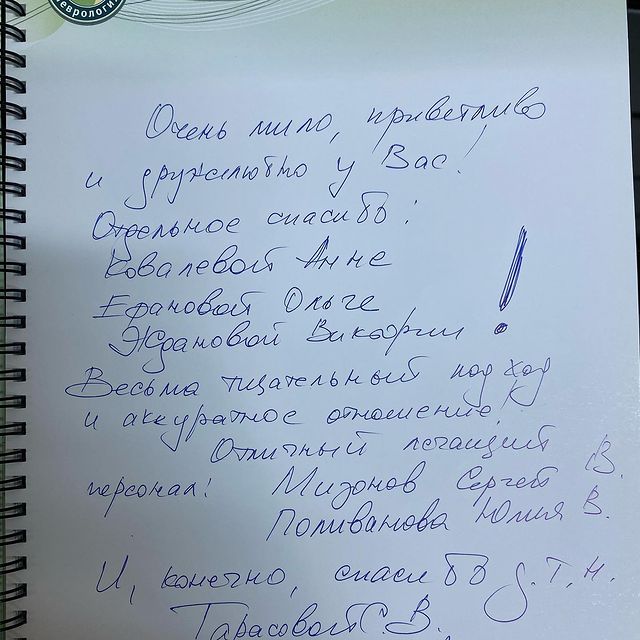 неврологии
Очень мило, приветливо
и дружелюбно у Вас!
Отдельное спасибо:
Ковалевой Анне
Ефановой Ольге
Ждановой Виктории !
Весьма тщательный подход
и аккуратное отношение!
Отличный лечащий
персонал! Мизонов Сергей В.
Поливанова Юлия В.
И, конечно, спасибо д.т.н.
Тарасовой С.В.